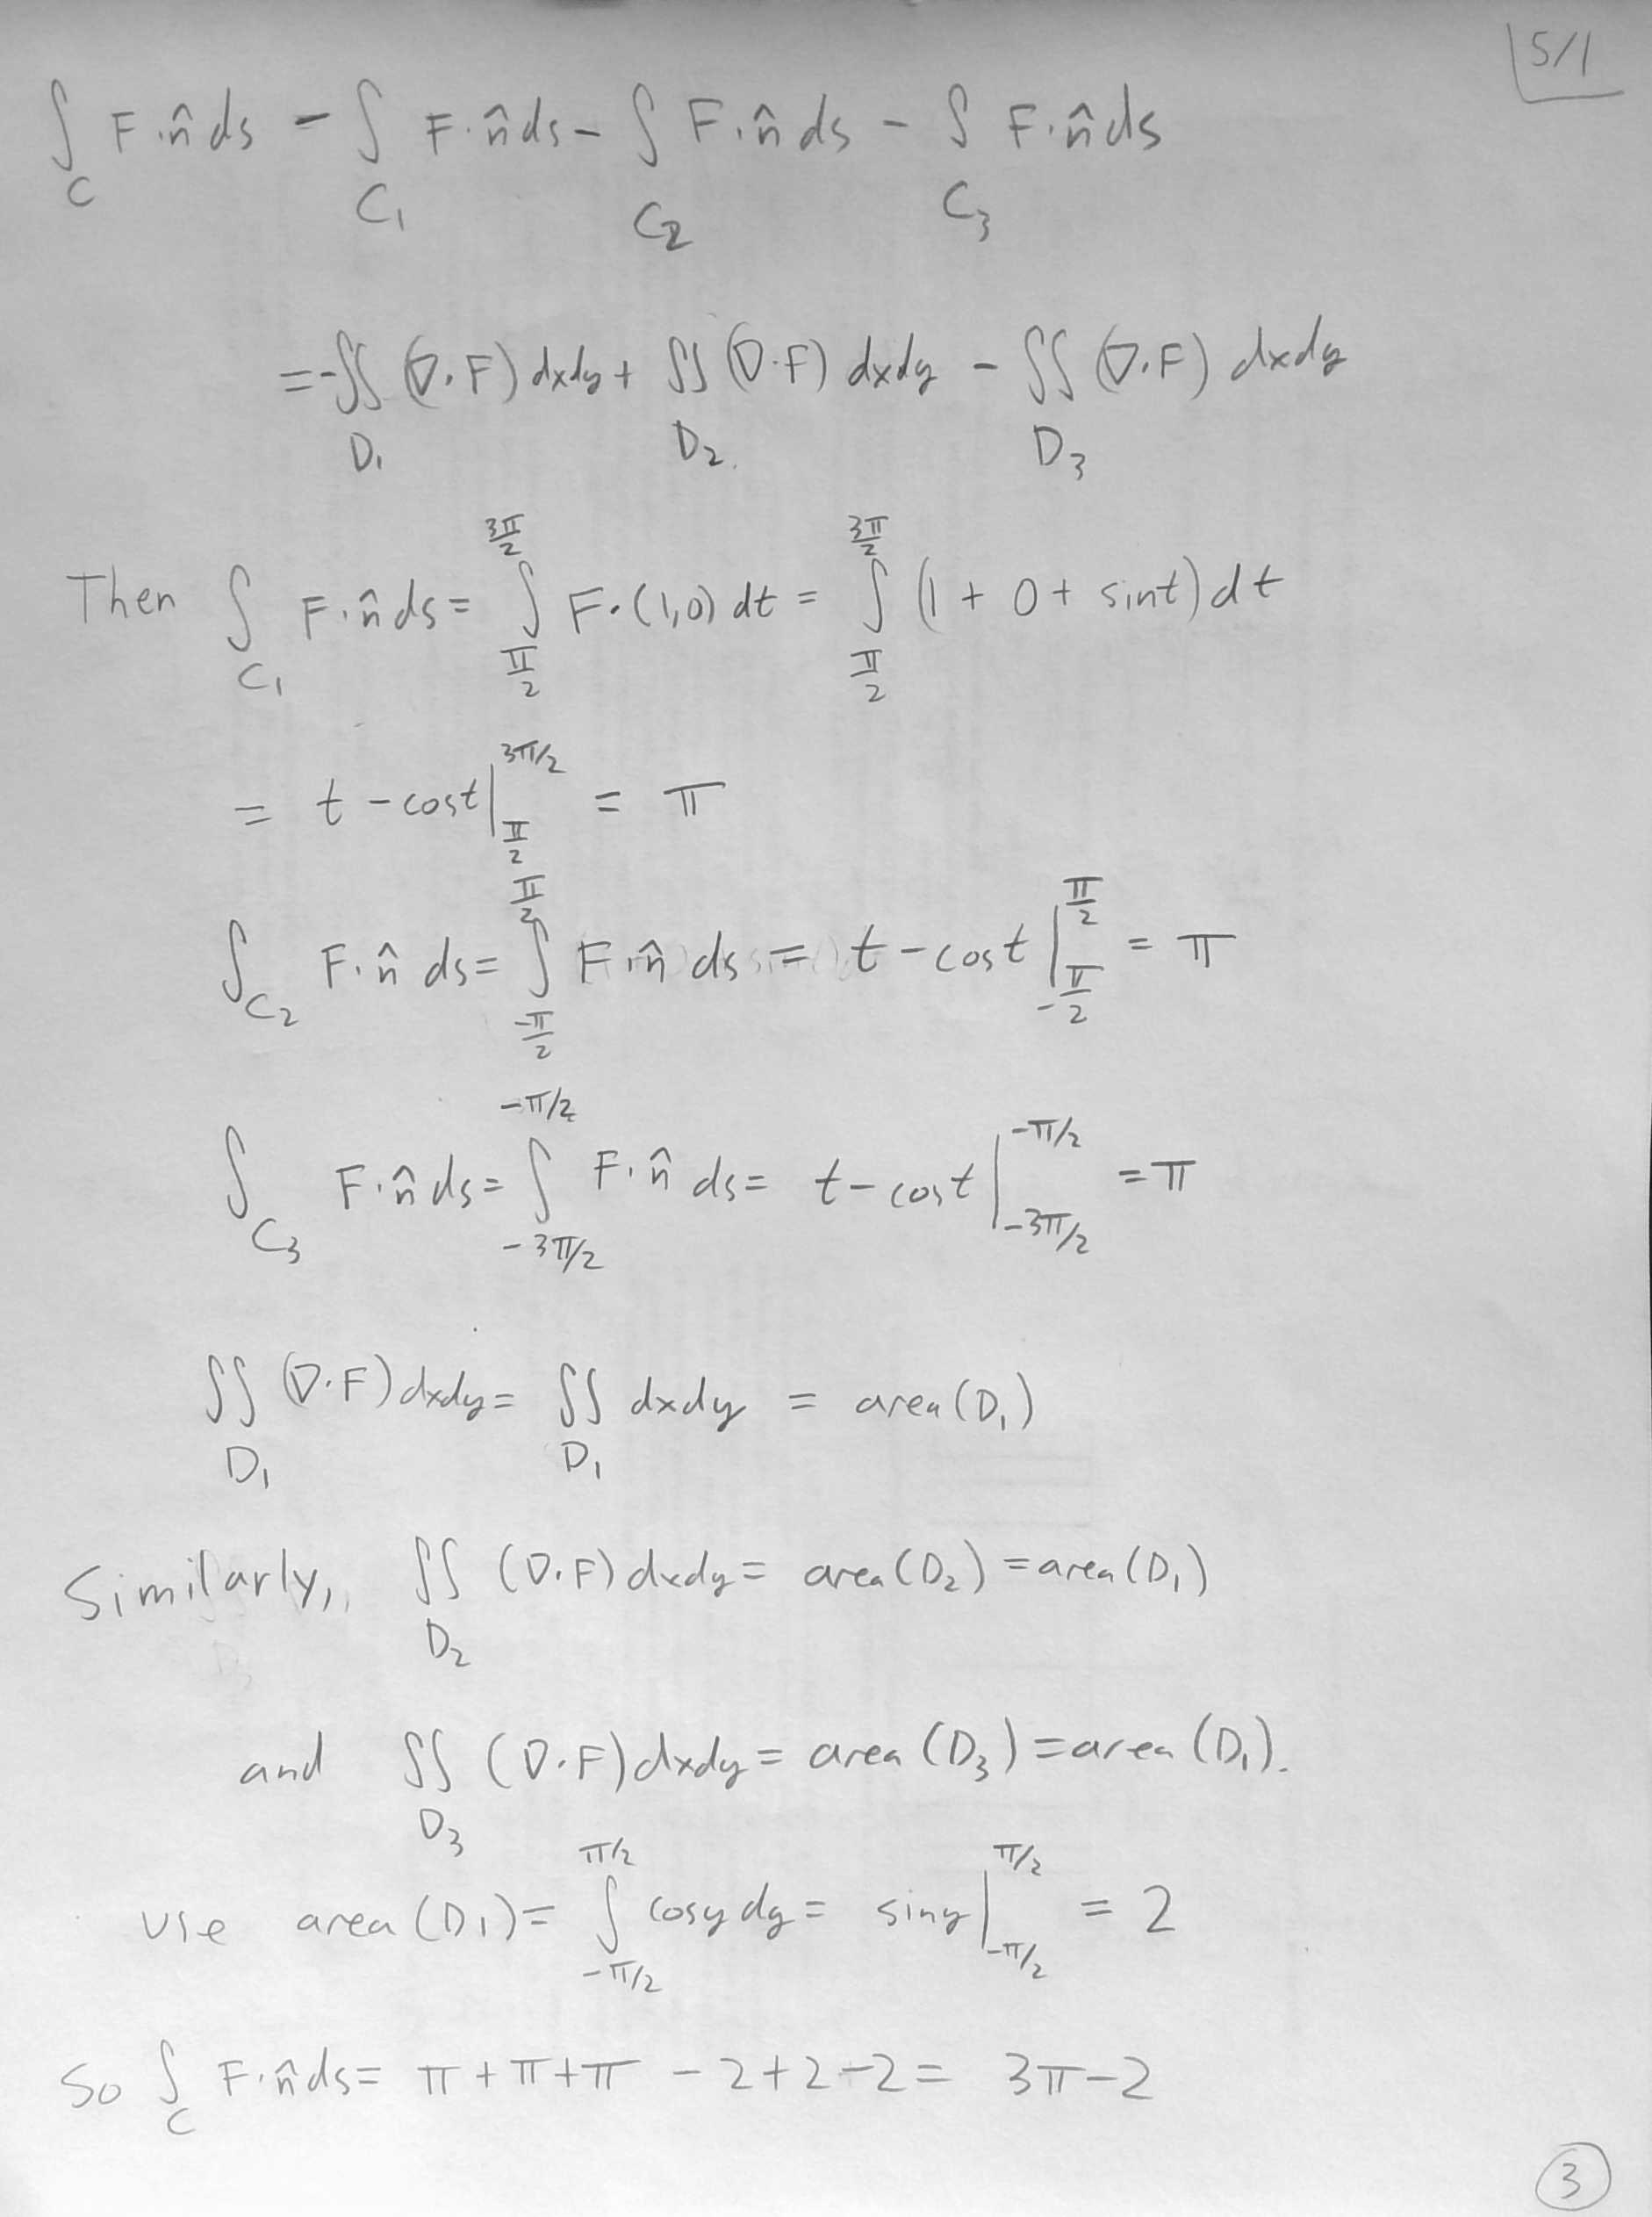 5/1
∫_C F·n̂ ds − ∫_{C₁} F·n̂ ds − ∫_{C₂} F·n̂ ds − ∫_{C₃} F·n̂ ds
= −∬_{D₁} (∇·F) dxdy + ∬_{D₂} (∇·F) dxdy − ∬_{D₃} (∇·F) dxdy
Then ∫_{C₁} F·n̂ ds = ∫_{π/2}^{3π/2} F·(1,0) dt = ∫_{π/2}^{3π/2} (1 + 0 + sint) dt
= t − cost |_{π/2}^{3π/2} = π
∫_{C₂} F·n̂ ds = ∫_{−π/2}^{π/2} F·n̂ ds = t − cost |_{−π/2}^{π/2} = π
∫_{C₃} F·n̂ ds = ∫_{−3π/2}^{−π/2} F·n̂ ds = t − cost |_{−3π/2}^{−π/2} = π
∬_{D₁} (∇·F) dxdy = ∬_{D₁} dxdy = area (D₁)
Similarly, ∬_{D₂} (∇·F) dxdy = area (D₂) = area (D₁)
and ∬_{D₃} (∇·F) dxdy = area (D₃) = area (D₁).
Use area (D₁) = ∫_{−π/2}^{π/2} cosy dy = siny |_{−π/2}^{π/2} = 2
So ∫_C F·n̂ ds = π + π + π − 2 + 2 − 2 = 3π − 2
3